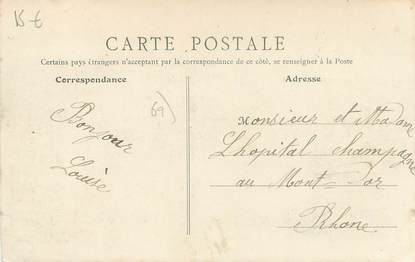 15 €
CARTE POSTALE
Certains pays étrangers n'acceptant par la correspondance de ce côté, se renseigner à la Poste
Correspondance
Adresse
69
Bonjour
Louise
Monsieur et Madame
Lhopital Champagne
au Mont-Dor
Rhone